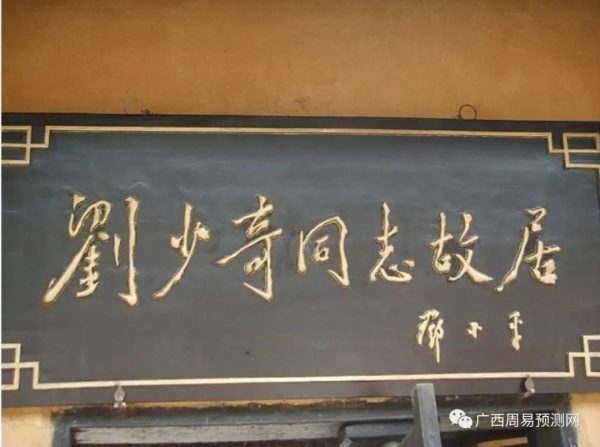 劉少奇同志故居
鄧小平
广西周易预测网